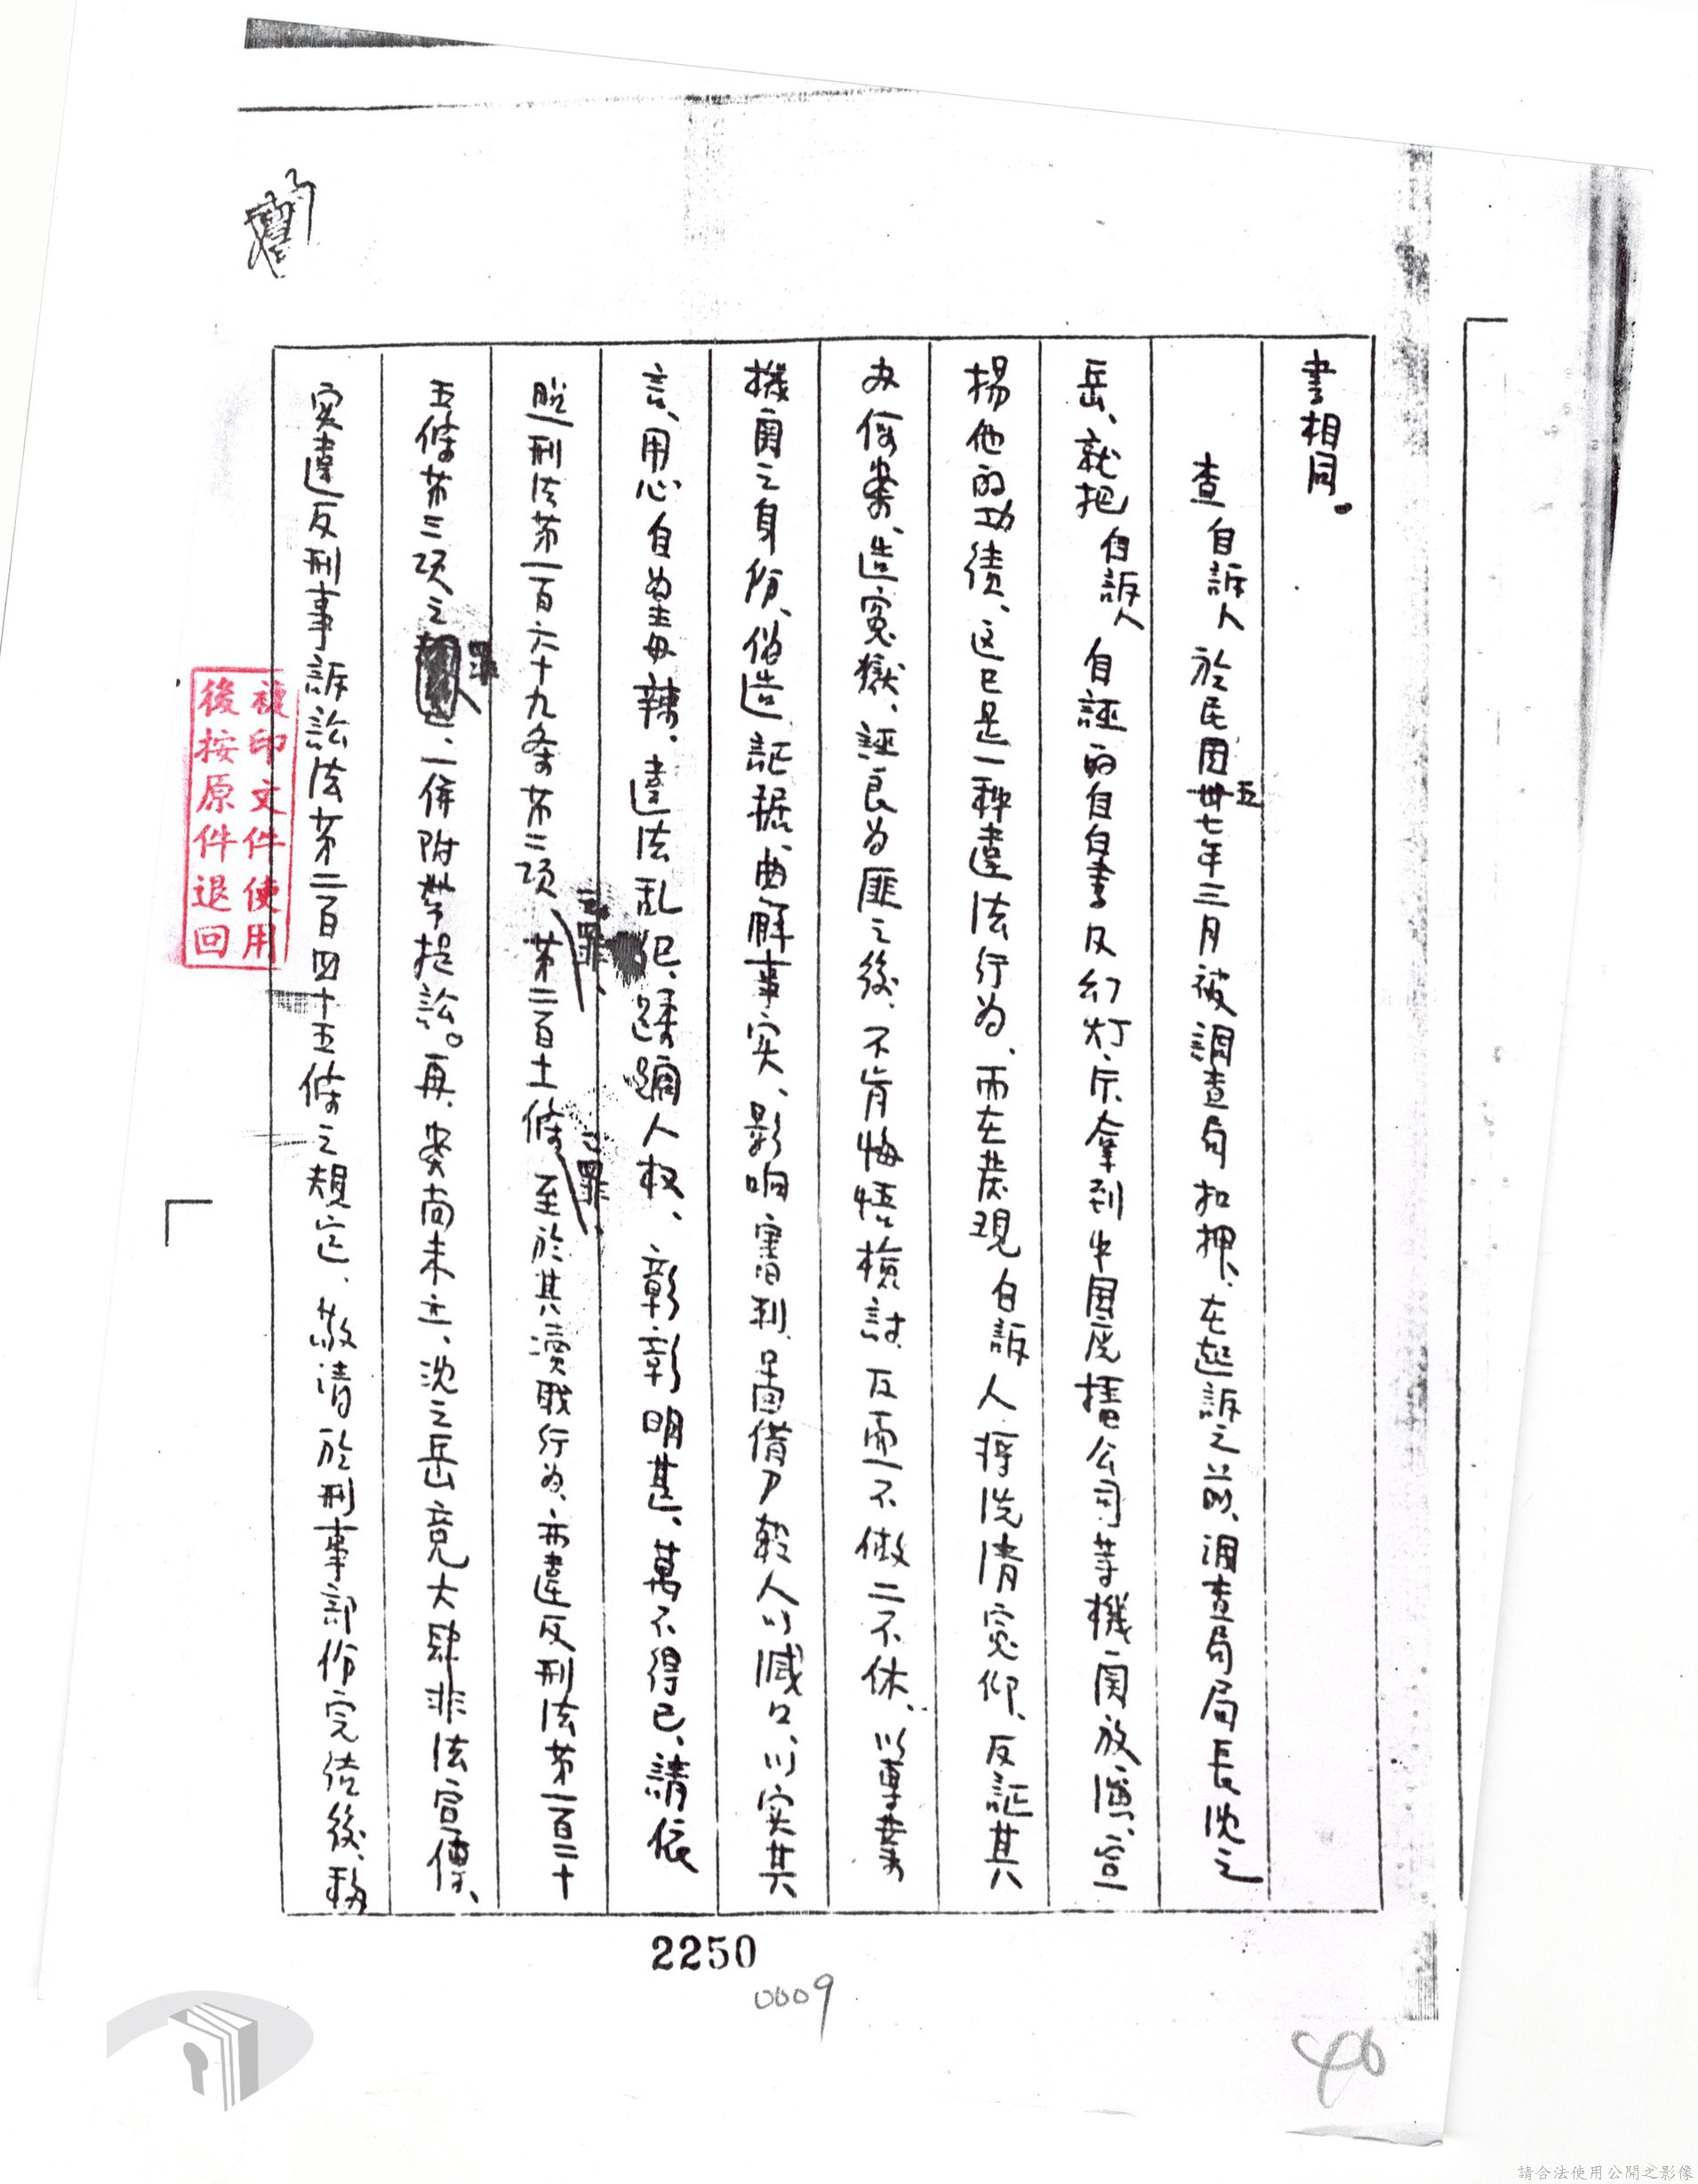 書相同。
查自訴人於民国五七年三月被調查局扣押、在起訴之前、調查局局長沈之
岳、就把自訴人自誣的自白書及幻灯片拿到中国広播公司等機関放演、宣
揚他的功績、这已是一种違法行为、而在發現自訴人將洗清冤仰、反証其
办假案、造冤獄、誣良为匪之後、不肯悔悟檢討、反而一不做二不休、以專業
機関之身份、偽造証据、曲解事实、影响審判、圖借尸殺人以滅口、以实其
言、用心自為至毋辣。違法乱纪、蹂躪人权、彰彰明甚、萬不得已、請依
照刑法第一百六十九条第二项之罪、第二百十條之罪、至於其瀆职行为、亦違反刑法第一百二十
五條第三项之罪、一併附帶提訟。再、案尚未定、沈之岳竟大肆非法宣傳、
实違反刑事訴訟法第二百四十五條之規定、敬请於刑事部份完结後、移
被印文件使用
後按原件退回
2250
0009
請合法使用公開之影像